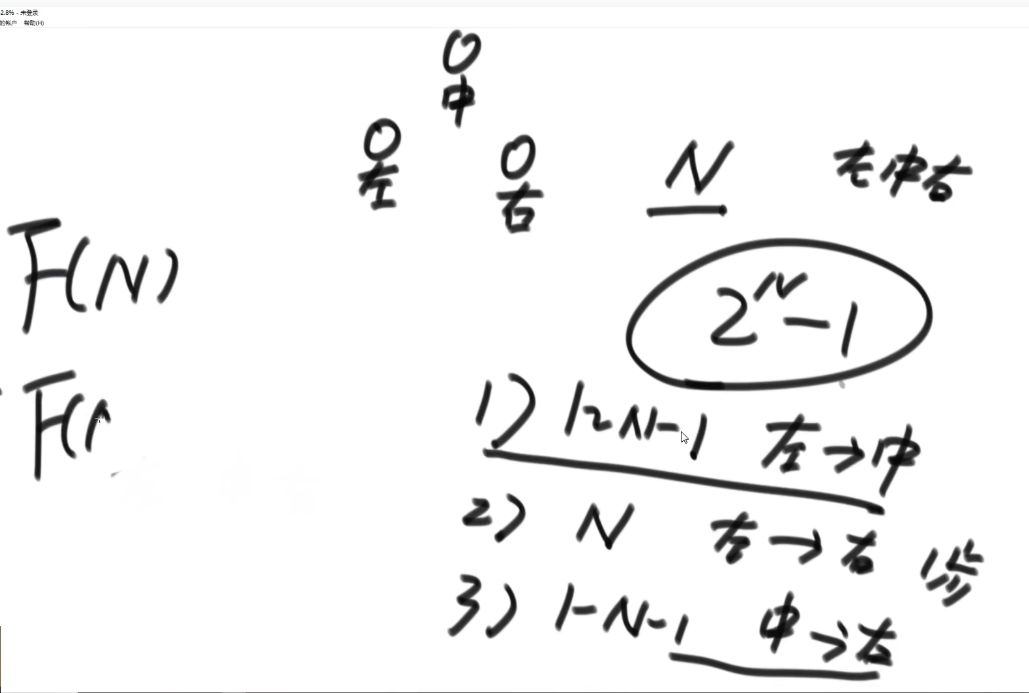 2.8% - 未登录
的帐户 帮助(H)
0
中
0
左
0
右
N
左中右
F(N)
2^N-1
1) 1~N-1 左→中
F(
2) N 左→右 1步
3) 1-N-1 中→右